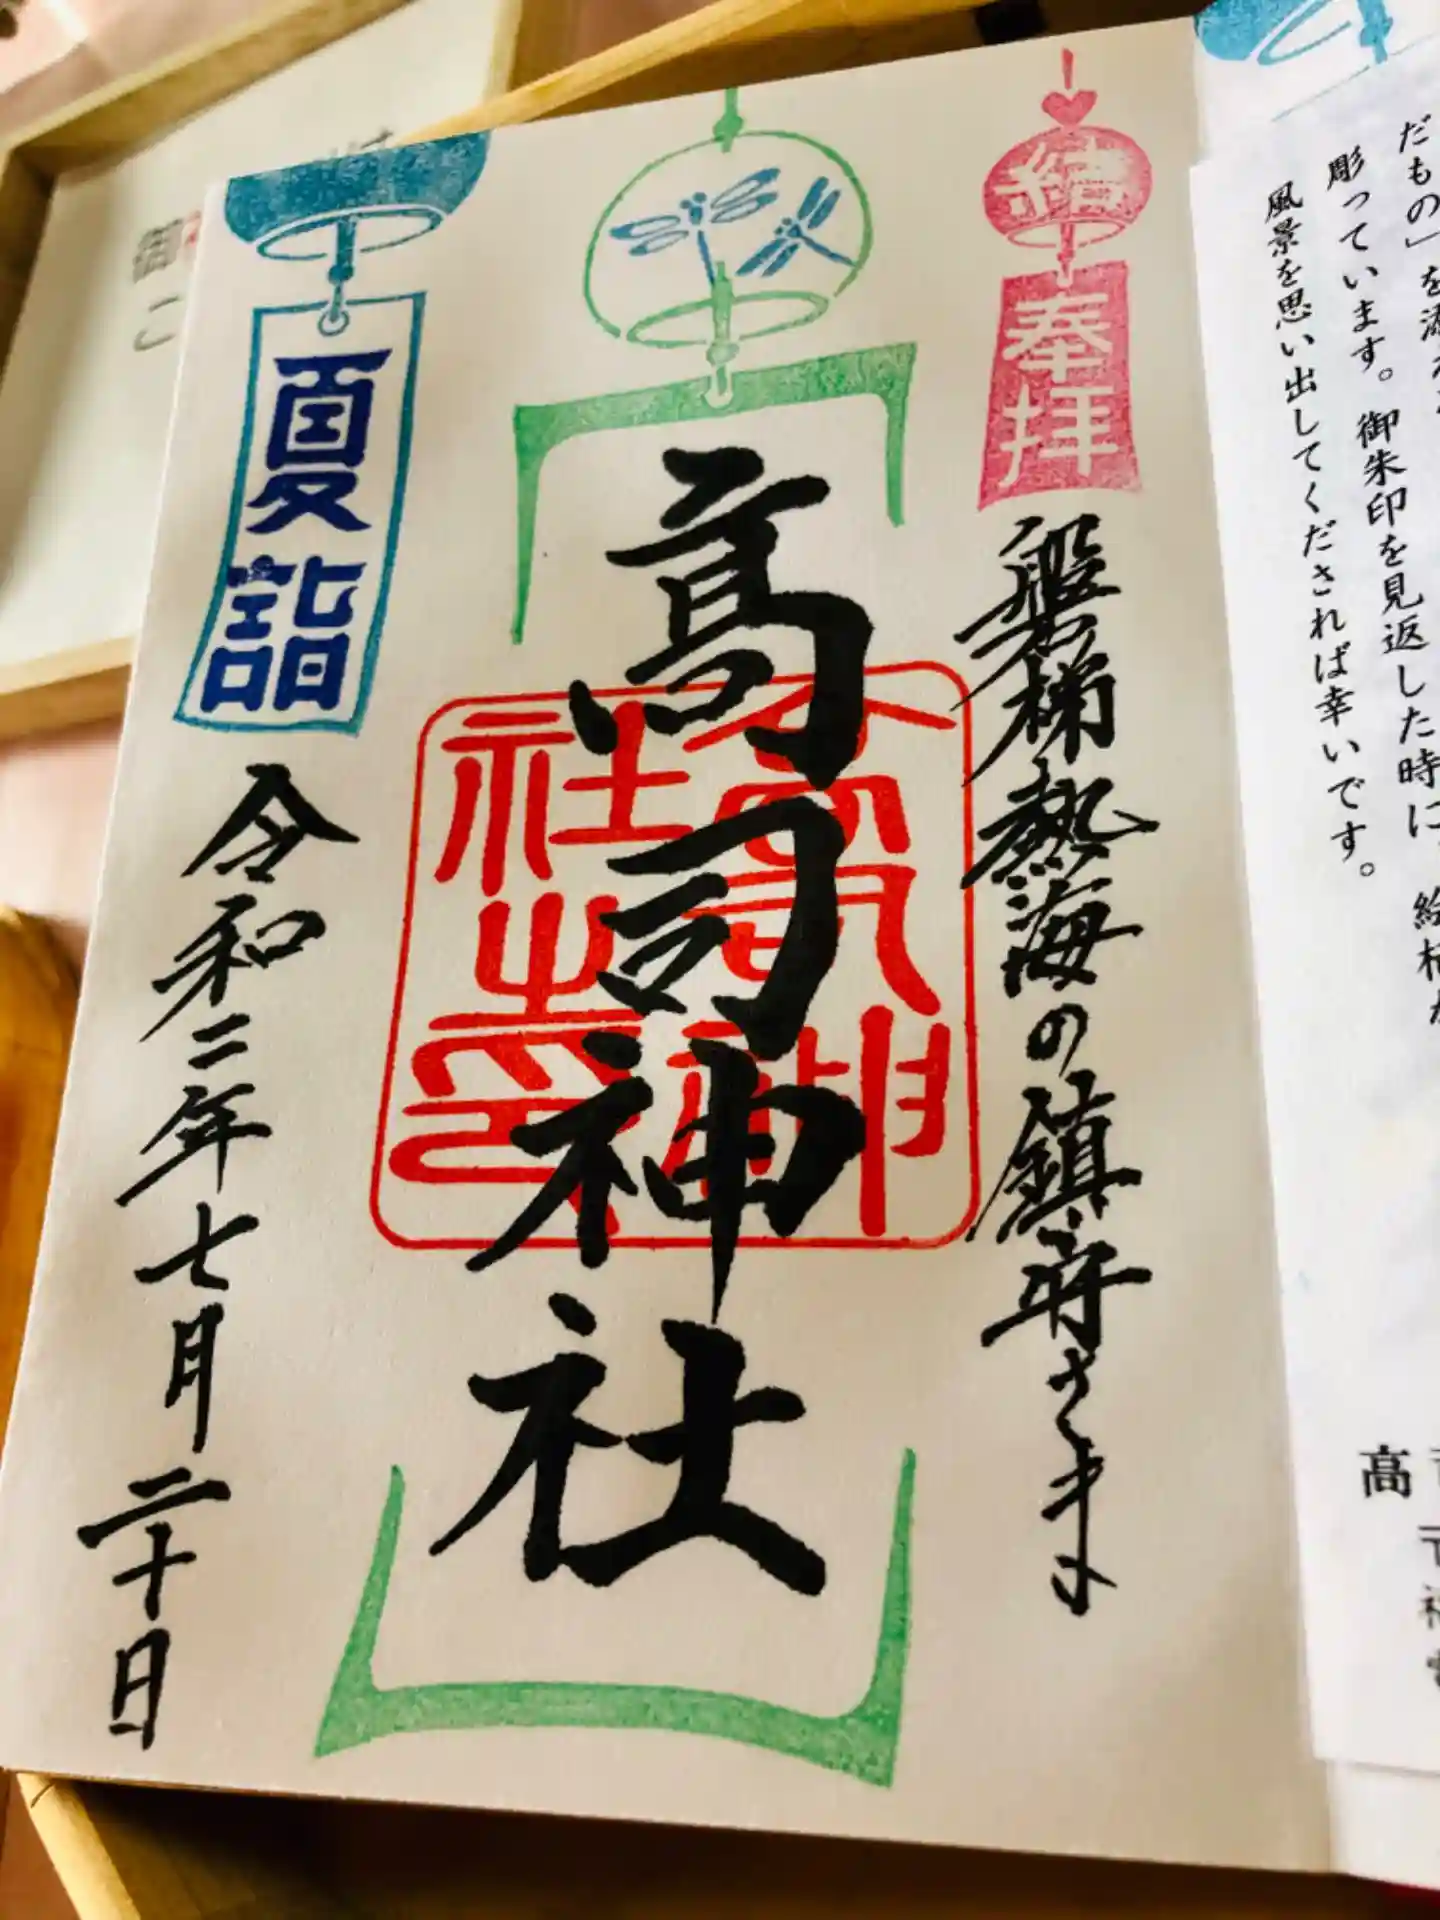 だもの」を
彫っています。御朱印を見返した時に
風景を思い出してくだされば幸いです。
高
結
奉拝
磐梯熱海の鎮守さま
高司神社
高司神
社之印
夏詣
令和二年七月二十日